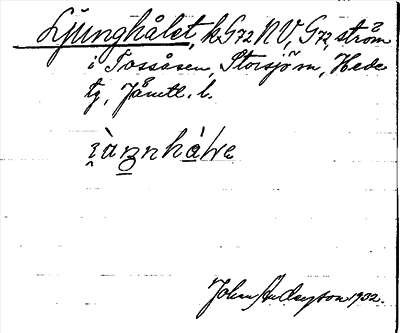 Ljunghålet, k G72 NV, G72, ström
i Tossåsen, Storsjö sn, Hede
tg, Jämtl. l.
i̯àn̠nhàl̵e
John Andersson 1902.